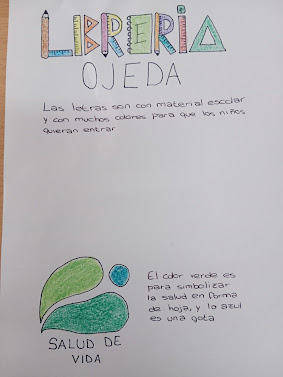 LIBRERIA
OJEDA
Las letras son con material escolar
y con muchos colores para que los niños
quieran entrar
El color verde es
para simbolizar
la salud en forma
de hoja, y lo azul
es una gota
SALUD DE
VIDA